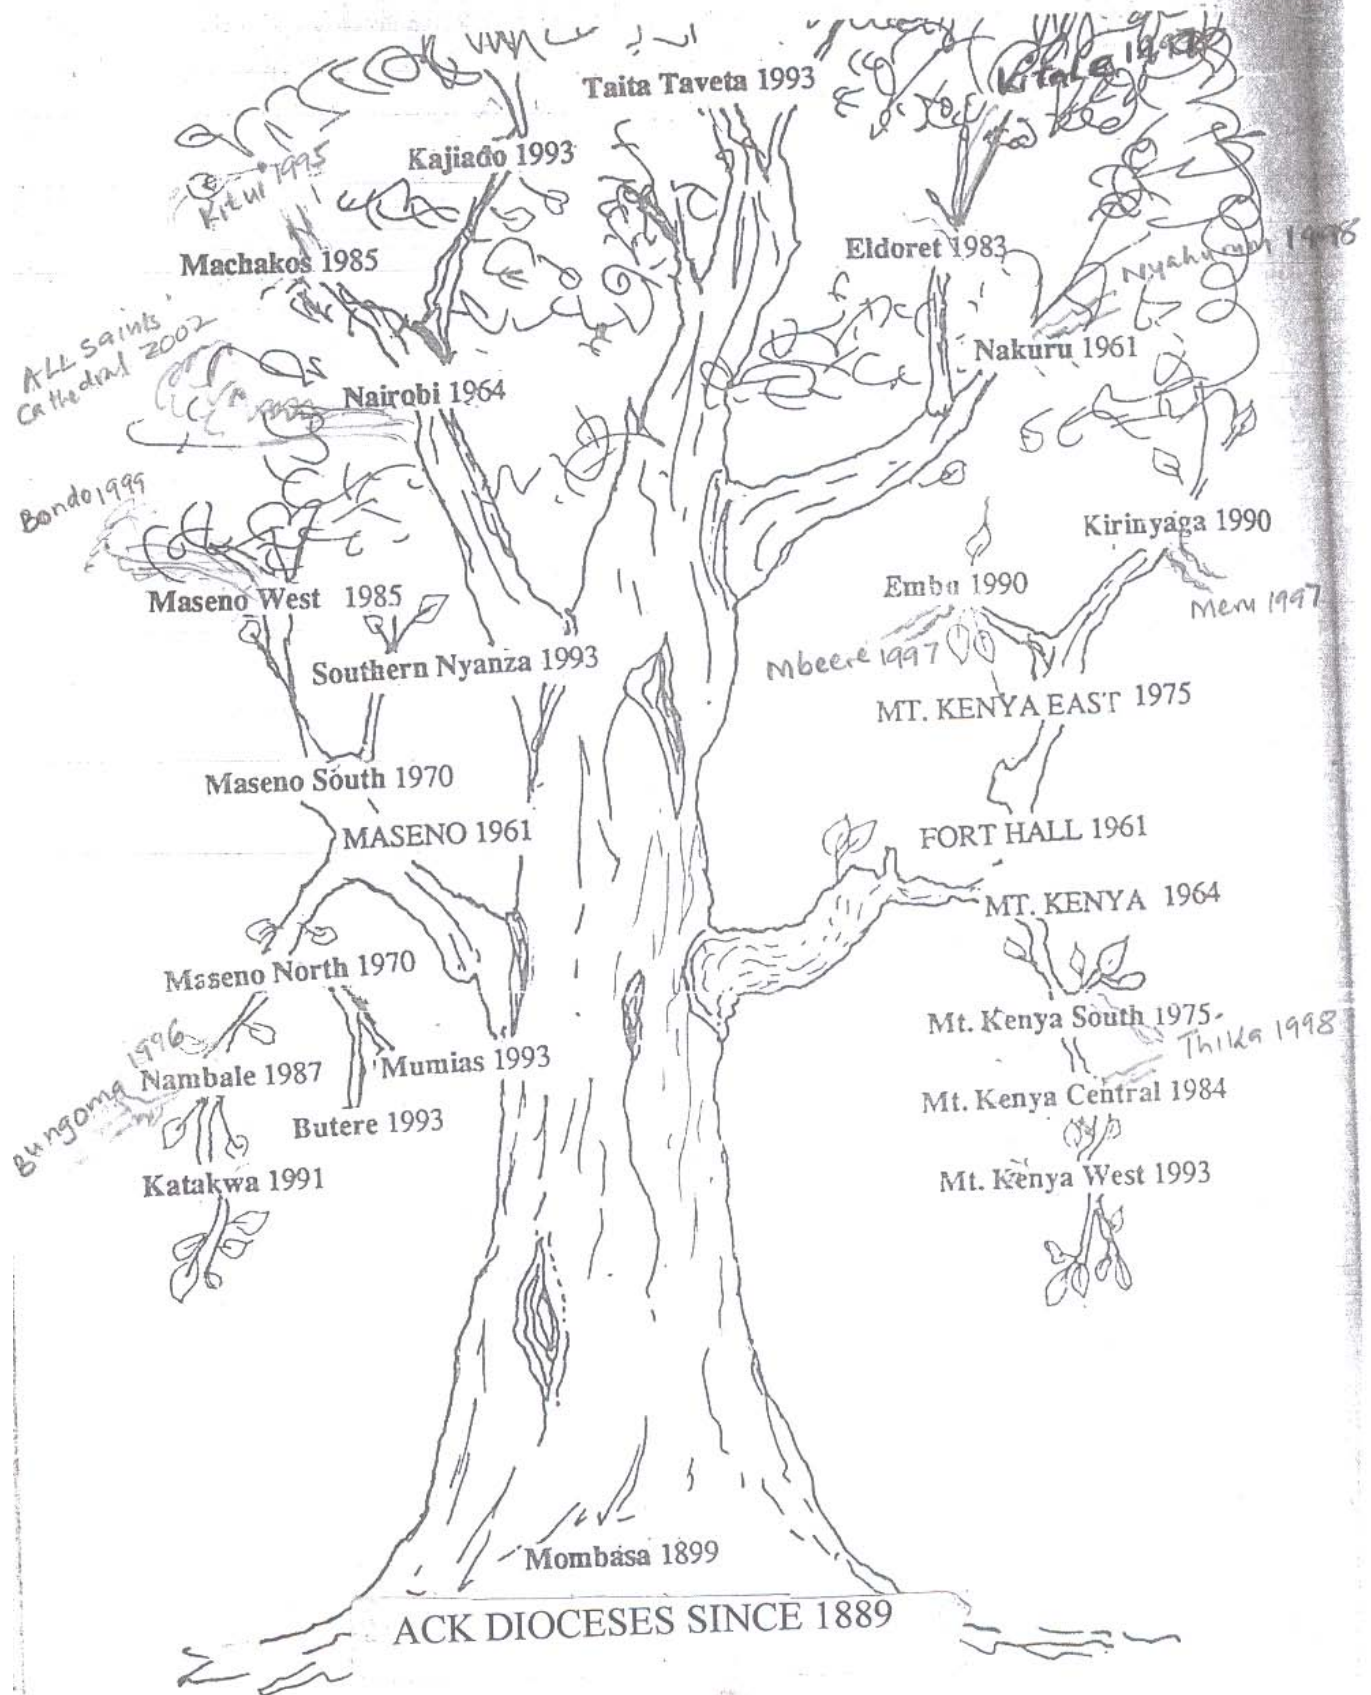 Taita Taveta 1993
Kitale 1997
Kajiado 1993
Kitui 1995
Machakos 1985
Eldoret 1983
1998
Nakuru 1961
ALL Saints'
Cathedral 2002
Nairobi 1964
Bondo 1999
Kirinyaga 1990
Embu 1990
Meru 1997
Maseno West 1985
Mbeere 1997
Southern Nyanza 1993
MT. KENYA EAST 1975
Maseno South 1970
MASENO 1961
FORT HALL 1961
MT. KENYA 1964
Maseno North 1970
Mt. Kenya South 1975
Thika 1998
Bungoma 1996
Nambale 1987
Mumias 1993
Mt. Kenya Central 1984
Butere 1993
Katakwa 1991
Mt. Kenya West 1993
Mombasa 1899
ACK DIOCESES SINCE 1889